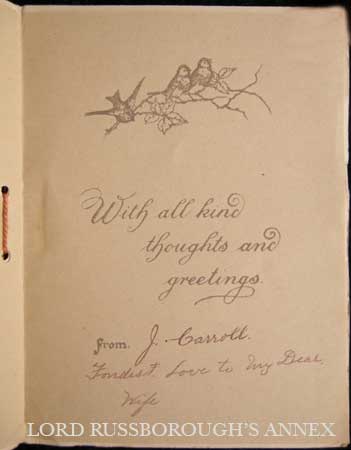 With all kind
thoughts and
greetings.
from. J. Carroll.
Fondest Love to My Dear
Wife
LORD RUSSBOROUGH'S ANNEX